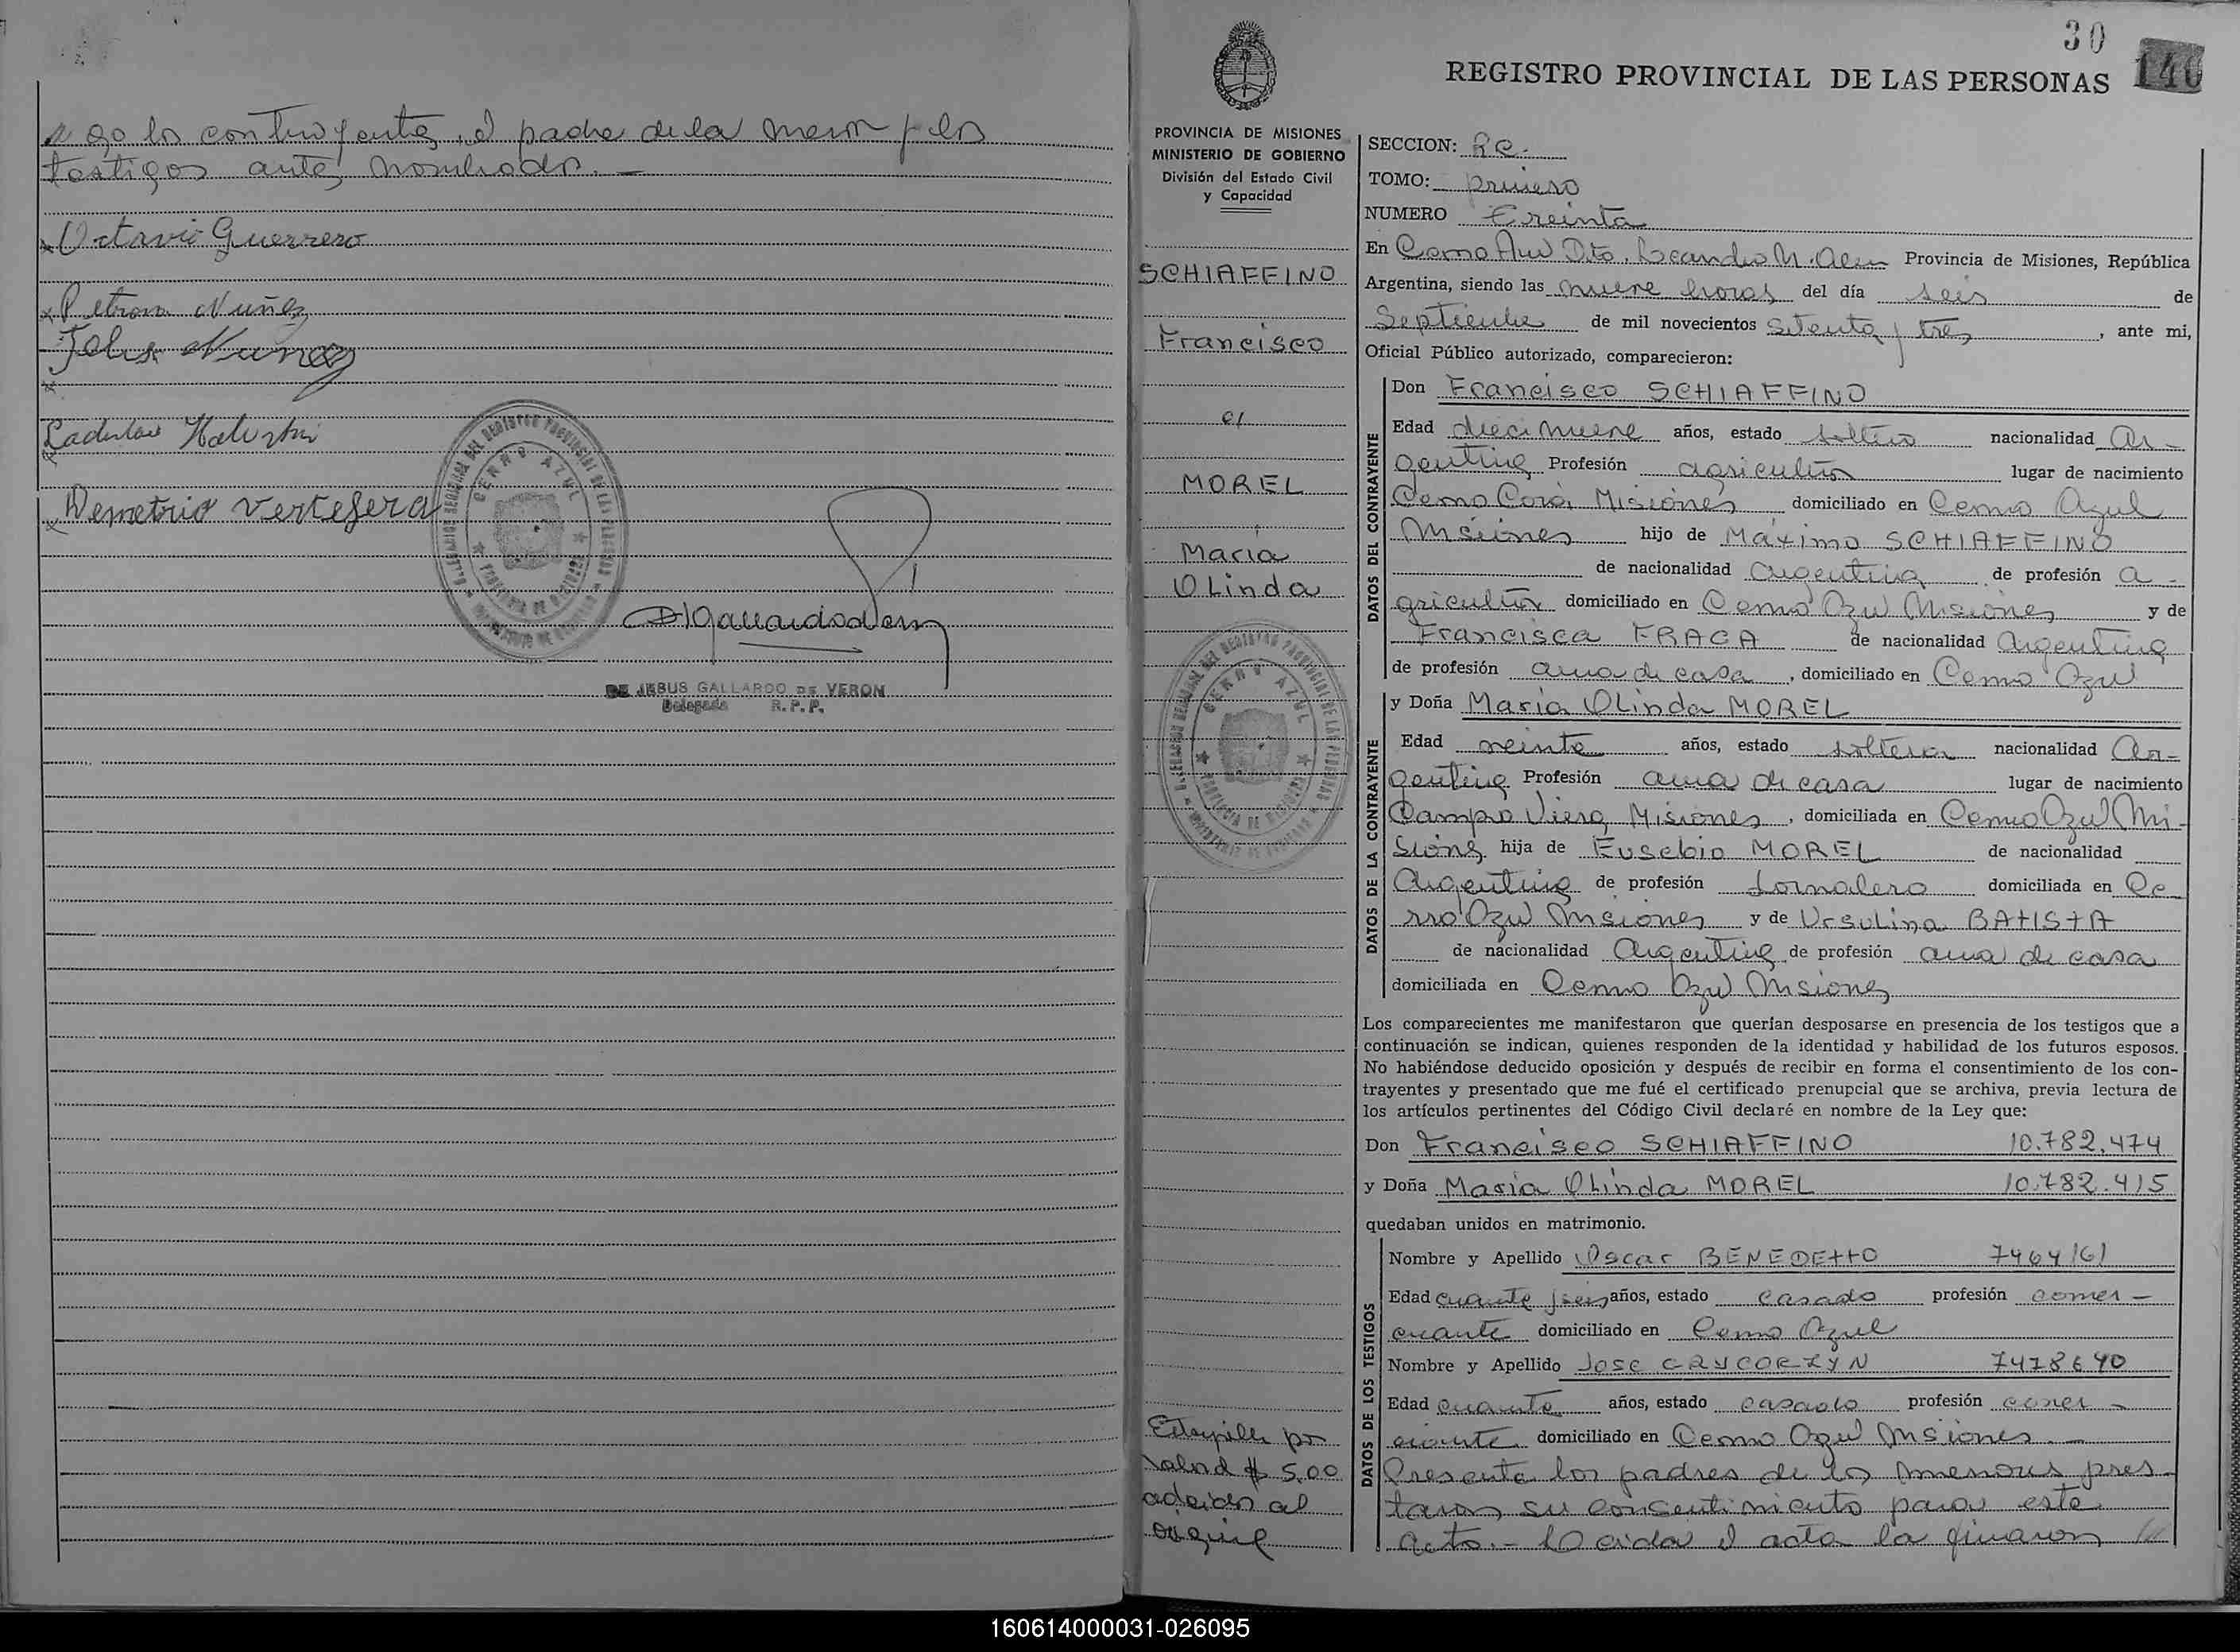 migo los contrayentes, el padre de la menor y los
testigos antes nombrados. —
Octavio Guerrero
Petrona Nuñez
Felix Nunez
Ladislao
Demetrio Vertegera
DE JESUS GALLARDO DE VERON
Delegada R. P. P.
30
140
REGISTRO PROVINCIAL DE LAS PERSONAS
PROVINCIA DE MISIONES
MINISTERIO DE GOBIERNO
División del Estado Civil
y Capacidad
SCHIAFFINO
Francisco
c/
MOREL
María
Olinda
CERRO AZUL
Estampilla por
valor d $ 5,00
adeidas al
original
SECCION: Rc.
TOMO: primero
NUMERO Treinta
En Cerro Azul Dto. Leandro N. Alem Provincia de Misiones, República
Argentina, siendo las nueve horas del día seis de
Septiembre de mil novecientos setenta y tres, ante mi,
Oficial Público autorizado, comparecieron:
DATOS DEL CONTRAYENTE
Don Francisco SCHIAFFINO
Edad diecinueve años, estado soltero nacionalidad Ar-
gentina Profesión agricultor lugar de nacimiento
Cerro Corá, Misiones domiciliado en Cerro Azul
Misiones hijo de Máximo SCHIAFFINO
de nacionalidad argentina de profesión a-
gricultor domiciliado en Cerro Azul Misiones y de
Francisca FRAGA de nacionalidad Argentina
de profesión ama de casa, domiciliado en Cerro Azul
DATOS DE LA CONTRAYENTE
y Doña María Olinda MOREL
Edad veinte años, estado soltera nacionalidad Ar-
gentina Profesión ama de casa lugar de nacimiento
Campo Viera, Misiones, domiciliada en Cerro Azul Mi-
siones hija de Eusebio MOREL de nacionalidad
Argentina de profesión Jornalero domiciliada en Ce
rro Azul Misiones y de Ursulina BATISTA
de nacionalidad Argentina de profesión ama de casa
domiciliada en Cerro Azul Misiones
Los comparecientes me manifestaron que querían desposarse en presencia de los testigos que a
continuación se indican, quienes responden de la identidad y habilidad de los futuros esposos.
No habiéndose deducido oposición y después de recibir en forma el consentimiento de los con-
trayentes y presentado que me fué el certificado prenupcial que se archiva, previa lectura de
los artículos pertinentes del Código Civil declaré en nombre de la Ley que:
Don Francisco SCHIAFFINO 10.782.474
y Doña María Olinda MOREL 10.782.415
quedaban unidos en matrimonio.
DATOS DE LOS TESTIGOS
Nombre y Apellido Oscar BENEDETTO 7464161
Edad cuarenta y seis años, estado casado profesión comer-
ciante domiciliado en Cerro Azul
Nombre y Apellido Jose GRYCORZYN 7478640
Edad cuarenta años, estado casado profesión comer-
ciante domiciliado en Cerro Azul Misiones. —
Presente los padres de los menores pres
taron su consentimiento para este
acto.- Leída el acta la firmaron
160614000031-026095